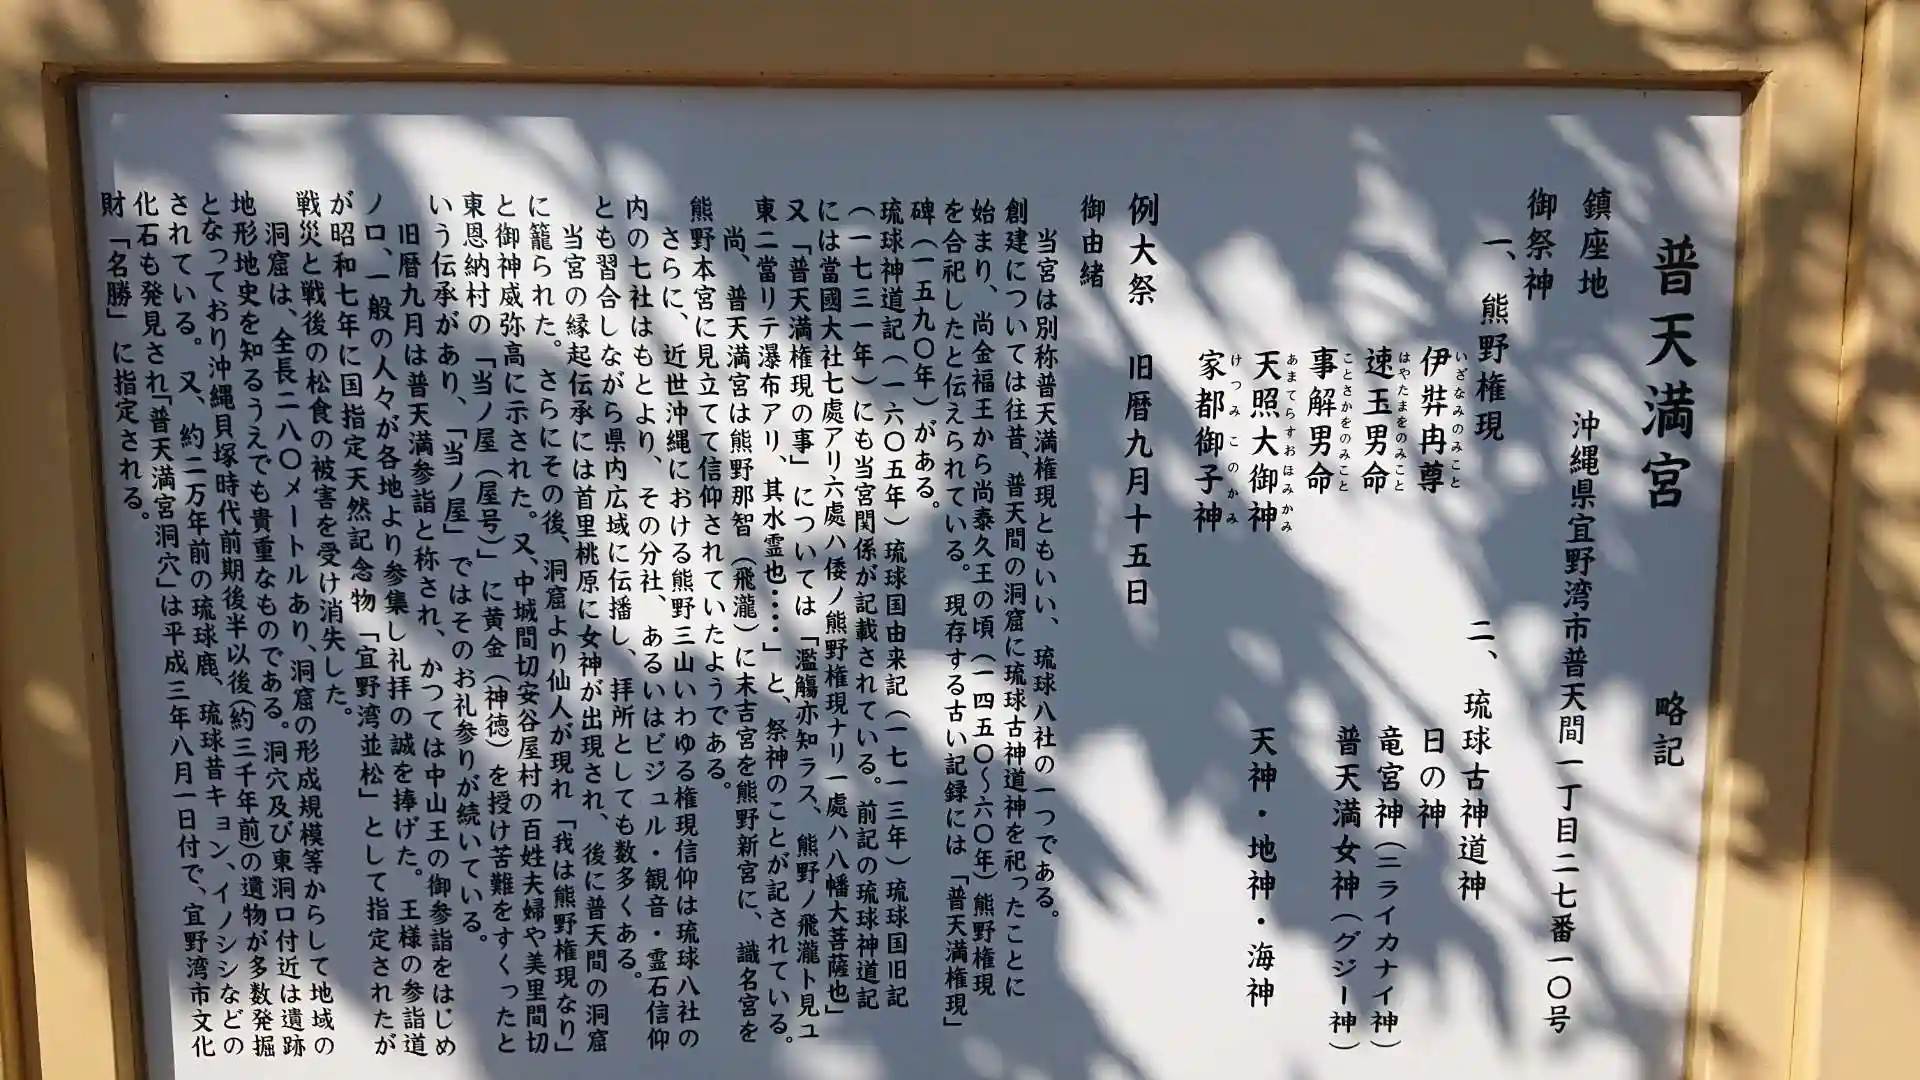 普天満宮 略記
鎮座地 沖縄県宜野湾市普天間一丁目二七番一〇号
御祭神
一、熊野権現
伊弉冉尊
いざなみのみこと
速玉男命
はやたまをのみこと
事解男命
ことさかをのみこと
天照大御神
あまてらすおほみかみ
家都御子神
けつみこのかみ
二、琉球古神道神
日の神
竜宮神（ニライカナイ神）
普天満女神（グジー神）
天神・地神・海神
例大祭 旧暦九月十五日
御由緒
当宮は別称普天満権現ともいい、琉球八社の一つである。
創建については往昔、普天間の洞窟に琉球古神道神を祀ったことに
始まり、尚金福王から尚泰久王の頃（一四五〇～六〇年）熊野権現
を合祀したと伝えられている。現存する古い記録には「普天満権現」
碑（一五九〇年）がある。
琉球神道記（一六〇五年）琉球国由来記（一七一三年）琉球国旧記
（一七三一年）にも当宮関係が記載されている。前記の琉球神道記
には當國大社七處アリ六處ハ倭ノ熊野権現ナリ一處ハ八幡大菩薩也」
又「普天満権現の事」については「濫觴亦知ラス、熊野ノ飛瀧ト見ユ
東二當リテ瀑布アリ、其水霊也・・・・」と、祭神のことが記されている。
尚、普天満宮は熊野那智（飛瀧）に末吉宮を熊野新宮に、識名宮を
熊野本宮に見立てて信仰されていたようである。
さらに、近世沖縄における熊野三山いわゆる権現信仰は琉球八社の
内の七社はもとより、その分社、あるいはビジュル・観音・霊石信仰
とも習合しながら県内広域に伝播し、拝所としても数多くある。
当宮の縁起伝承には首里桃原に女神が出現され、後に普天間の洞窟
に籠られた。さらにその後、洞窟より仙人が現れ「我は熊野権現なり」
と御神威弥高に示された。又、中城間切安谷屋村の百姓夫婦や美里間切
東恩納村の「当ノ屋（屋号）」に黄金（神徳）を授け苦難をすくったと
いう伝承があり、「当ノ屋」ではそのお礼参りが続いている。
旧暦九月は普天満参詣と称され、かつては中山王の御参詣をはじめ
ノロ、一般の人々が各地より参集し礼拝の誠を捧げた。王様の参詣道
が昭和七年に国指定天然記念物「宜野湾並松」として指定されたが
戦災と戦後の松食の被害を受け消失した。
洞窟は、全長二八〇メートルあり、洞窟の形成規模等からして地域の
地形地史を知るうえでも貴重なものである。洞穴及び東洞口付近は遺跡
となっており沖縄貝塚時代前期後半以後（約三千年前）の遺物が多数発掘
されている。又、約二万年前の琉球鹿、琉球昔キョン、イノシシなどの
化石も発見され「普天満宮洞穴」は平成三年八月一日付で、宜野湾市文化
財「名勝」に指定される。